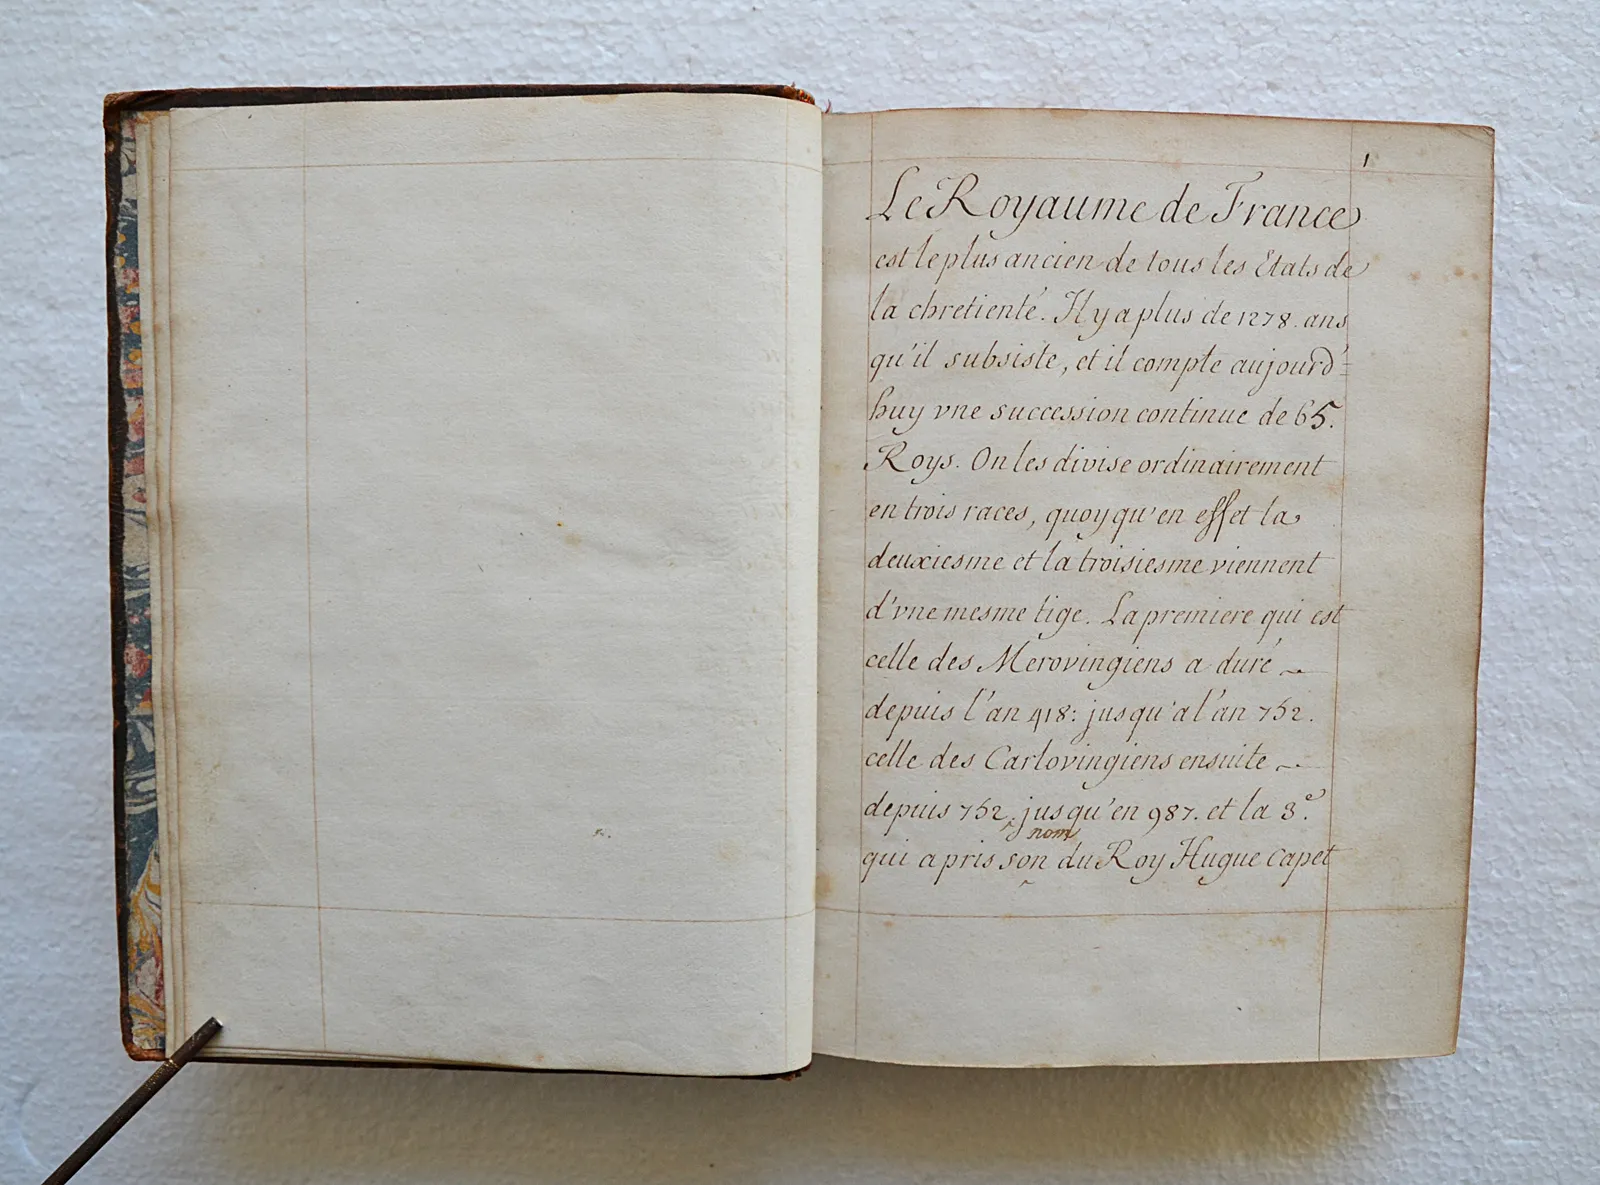 1
Le Royaume de France
est le plus ancien de tous les Etats de
la chretienté. Il y a plus de 1278. ans
qu'il subsiste, et il compte aujourd'=
huy vne succession continue de 65.
Roys. On les divise ordinairement
en trois races, quoy qu'en effet la
deuxiesme et la troisiesme viennent
d'vne mesme tige. La premiere qui est
celle des Merovingiens a duré
depuis l'an 418: jusqu'a l'an 752.
celle des Carlovingiens ensuite
depuis 752. jusqu'en 987. et la 3.e
nom
qui a pris son du Roy Hugue Capet